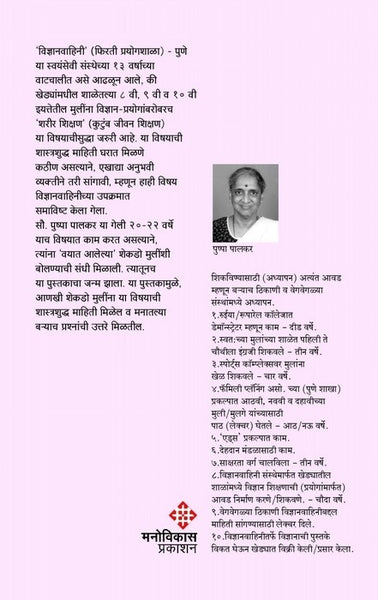 'विज्ञानवाहिनी' (फिरती प्रयोगशाळा) - पुणे
या स्वयंसेवी संस्थेच्या १३ वर्षाच्या
वाटचालीत असे आढळून आले, की
खेड्यांमधील शाळेतल्या ८ वी, ९ वी व १० वी
इयत्तेतील मुलींना विज्ञान-प्रयोगांबरोबरच
'शरीर शिक्षण' (कुटुंब जीवन शिक्षण)
या विषयाचीसुद्धा जरुरी आहे. या विषयाची
शास्त्रशुद्ध माहिती घरात मिळणे
कठीण असल्याने, एखाद्या अनुभवी
व्यक्तीने तरी सांगावी, म्हणून हाही विषय
विज्ञानवाहिनीच्या उपक्रमात
समाविष्ट केला गेला.
सौ. पुष्पा पालकर या गेली २०-२२ वर्षे
याच विषयात काम करत असल्याने,
त्यांना 'वयात आलेल्या' शेकडो मुलींशी
बोलण्याची संधी मिळाली. त्यातूनच
या पुस्तकाचा जन्म झाला. या पुस्तकामुळे,
आणखी शेकडो मुलींना या विषयाची
शास्त्रशुद्ध माहिती मिळेल व मनातल्या
बऱ्याच प्रश्नांची उत्तरे मिळतील.
पुष्पा पालकर
शिकविण्यासाठी (अध्यापन) अत्यंत आवड
म्हणून बऱ्याच ठिकाणी व वेगवेगळ्या
संस्थांमध्ये अध्यापन.
१.रुईया/रूपारेल कॉलेजात
डेमॉन्स्ट्रेटर म्हणून काम - दीड वर्षे.
२.स्वत:च्या मुलांच्या शाळेत पहिली ते
चौथीला इंग्रजी शिकवले - तीन वर्षे.
३.स्पोर्ट्स कॉम्प्लेक्सवर मुलांना
खेळ शिकवले - चार वर्षे.
४.फॅमिली प्लॅनिंग असो. च्या (पुणे शाखा)
प्रकल्पात आठवी, नववी व दहावीच्या
मुली/मुलगे यांच्यासाठी
पाठ (लेक्चर) घेतले - आठ/नऊ वर्षे.
५.'एड्स' प्रकल्पात काम.
६.देहदान मंडळासाठी काम.
७.साक्षरता वर्ग चालविला - तीन वर्षे.
८.विज्ञानवाहिनी संस्थेमार्फत खेड्यातील
शाळांमध्ये विज्ञान शिक्षणाची (प्रयोगांमार्फत)
आवड निर्माण करणे/शिकवणे. - चौदा वर्षे.
९.वेगवेगळ्या ठिकाणी विज्ञानवाहिनीबद्दल
माहिती सांगण्यासाठी लेक्चर दिले.
१०.विज्ञानवाहिनीतर्फे विज्ञानाची पुस्तके
विकत घेऊन खेड्यात विक्री केली/प्रसार केला.
मनोविकास
प्रकाशन